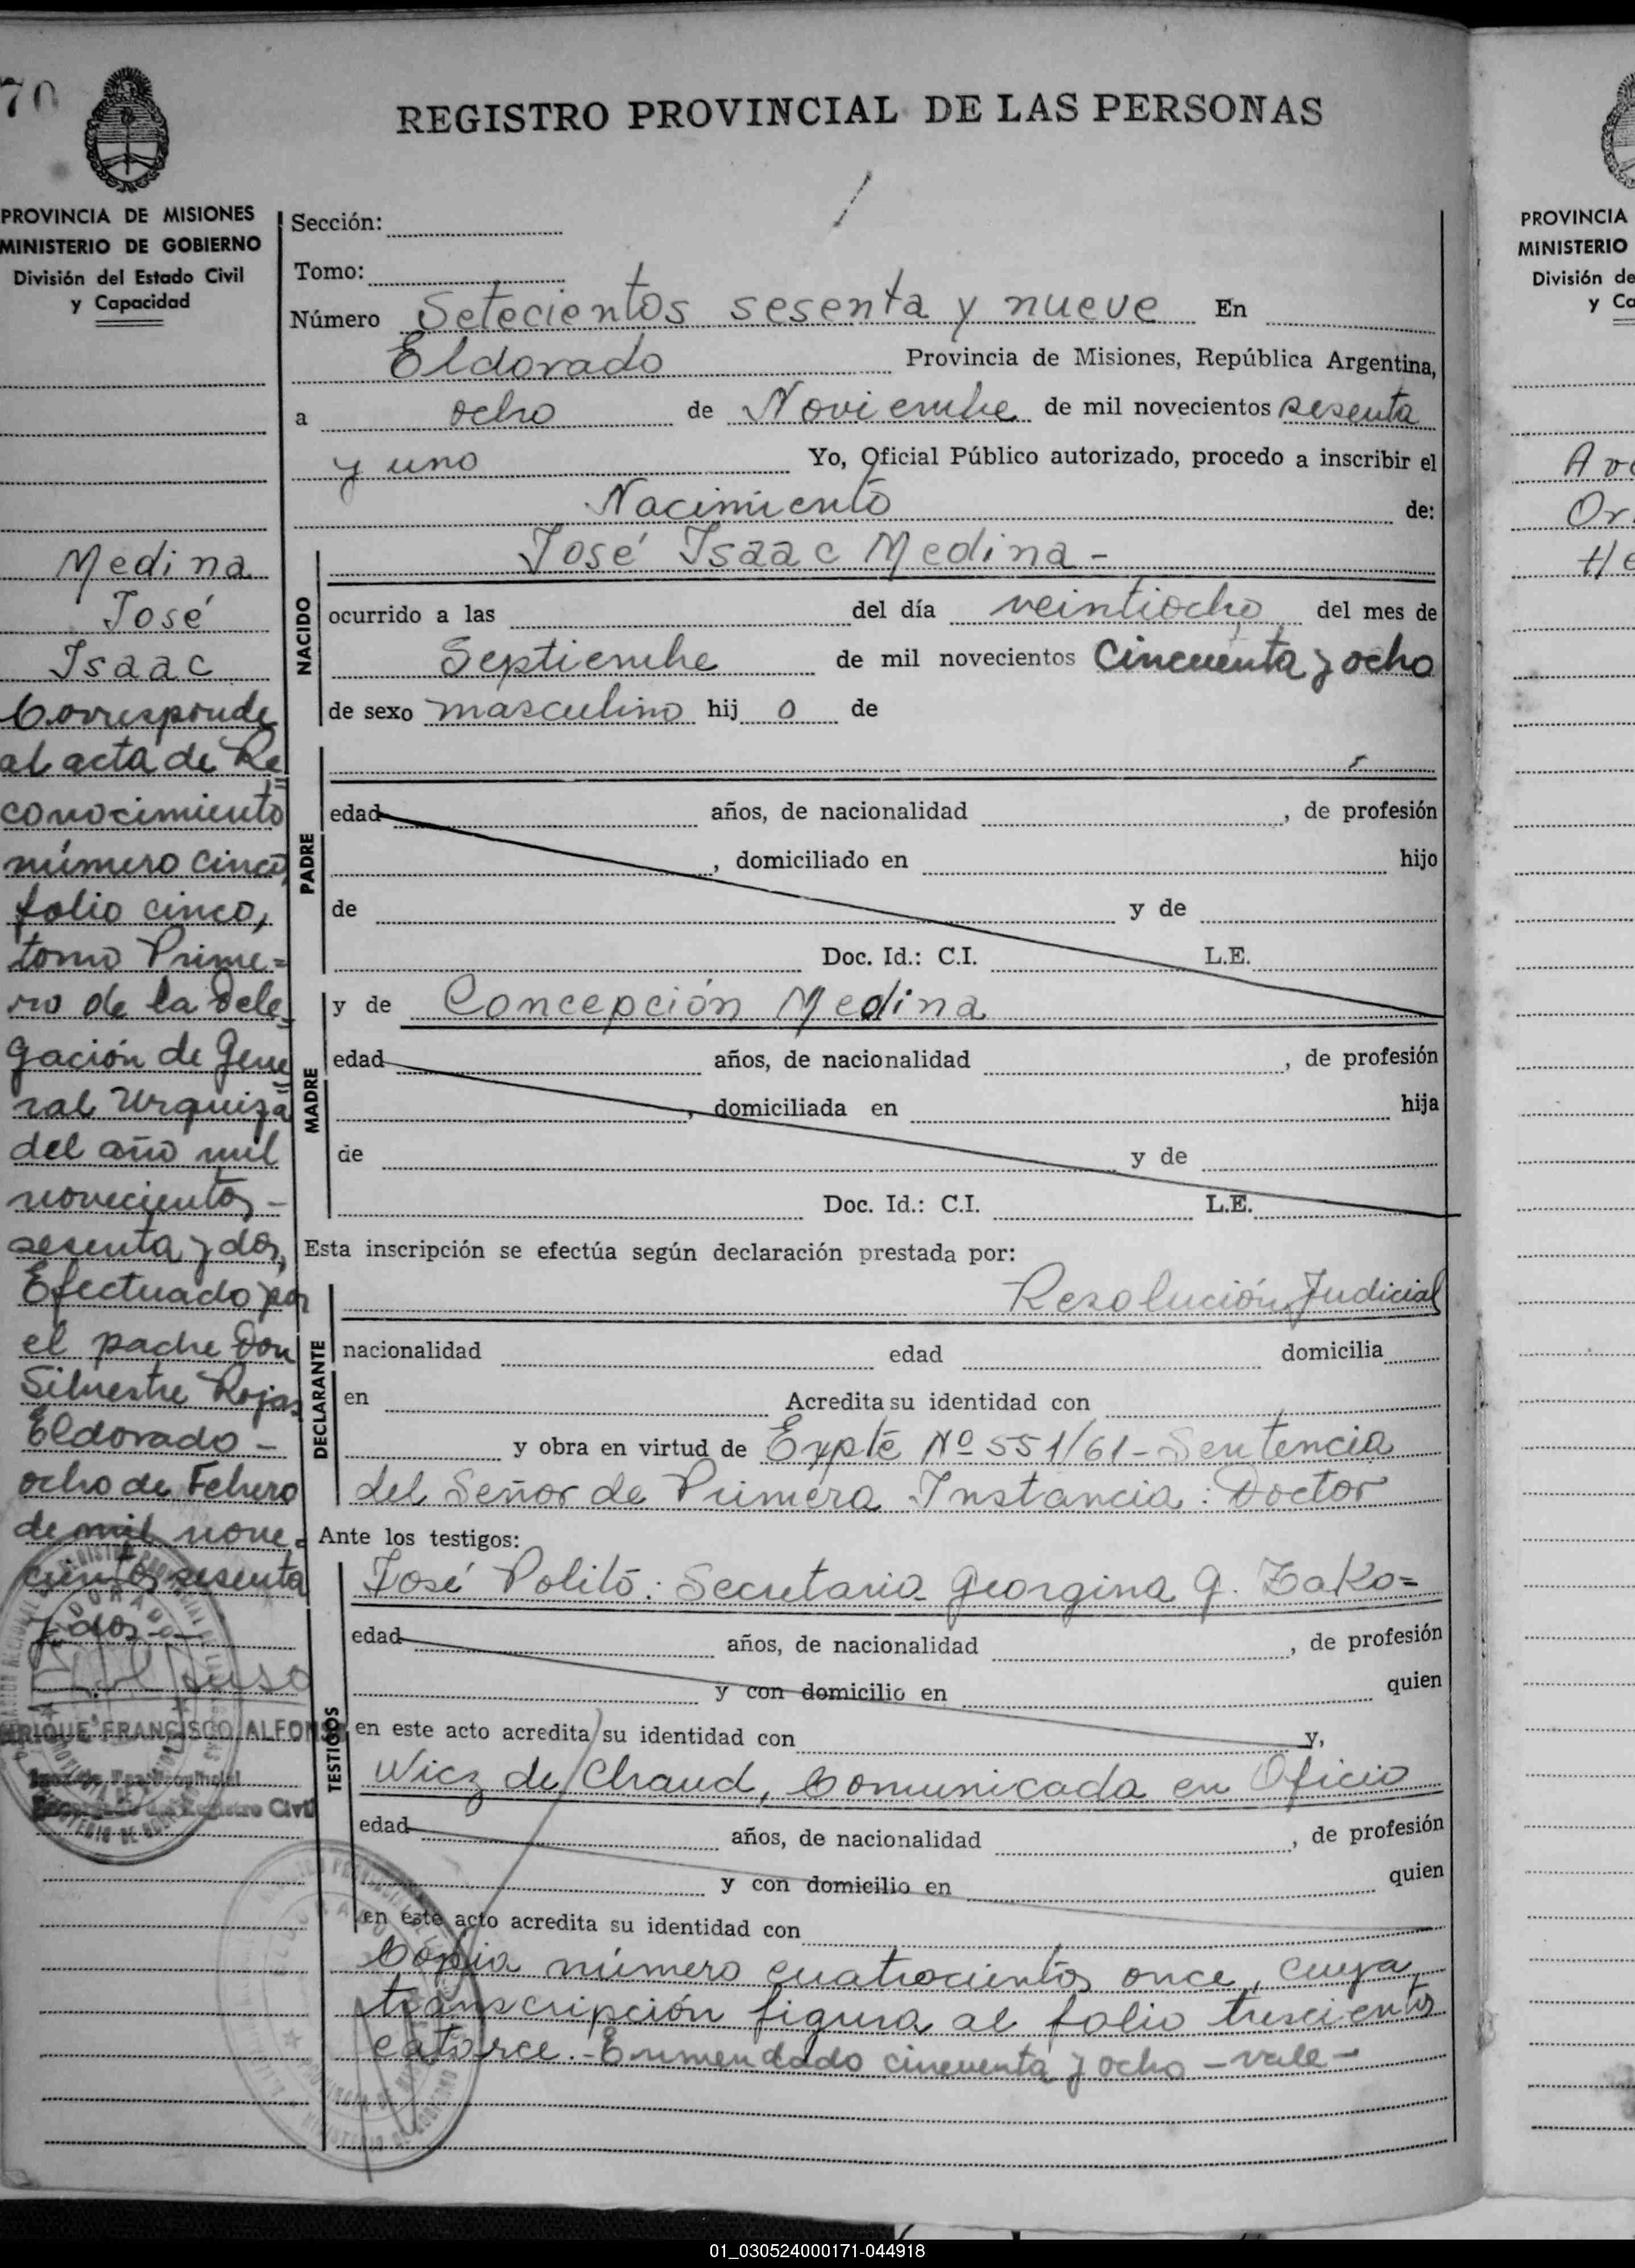 70
REGISTRO PROVINCIAL DE LAS PERSONAS
PROVINCIA DE MISIONES
MINISTERIO DE GOBIERNO
División del Estado Civil
y Capacidad
Medina
José
Isaac
Corresponde
al acta de Re=
conocimiento
número cinco,
folio cinco,
tomo Prime=
ro de la Dele=
gación de Gene=
ral Urquiza
del año mil
novecientos -
sesenta y dos,
Efectuado por
el padre Don
Silvestre Rojas
Eldorado -
ocho de Febrero
de mil nove=
cientos sesenta
y dos -
ENRIQUE FRANCISCO ALFONSO
Registro Civil
Sección:
Tomo:
Número Setecientos sesenta y nueve En
Eldorado Provincia de Misiones, República Argentina,
a ocho de Noviembre de mil novecientos sesenta
y uno Yo, Oficial Público autorizado, procedo a inscribir el
Nacimiento de:
NACIDO
José Isaac Medina -
ocurrido a las del día veintiocho del mes de
Septiembre de mil novecientos Cincuenta y ocho
de sexo masculino hij o de
PADRE
edad años, de nacionalidad , de profesión
, domiciliado en hijo
de y de
Doc. Id.: C.I. L.E.
MADRE
y de Concepción Medina
edad años, de nacionalidad , de profesión
, domiciliada en hija
de y de
Doc. Id.: C.I. L.E.
Esta inscripción se efectúa según declaración prestada por:
DECLARANTE
Resolución Judicial
nacionalidad edad domicilia
en Acredita su identidad con
y obra en virtud de Expte Nº 551/61 - Sentencia
del Señor de Primera Instancia: Doctor
Ante los testigos:
TESTIGOS
José Politó: Secretaria Georgina G. Zako=
edad años, de nacionalidad , de profesión
y con domicilio en quien
en este acto acredita su identidad con y,
Wicz de Chaud, Comunicada en Oficio
edad años, de nacionalidad , de profesión
y con domicilio en quien
en este acto acredita su identidad con
Copia número cuatrocientos once, cuya
transcripción figura al folio trescientos
catorce. - Enmendado cincuenta y ocho - vale -
PROVINCIA
MINISTERIO
División de
y Ca
Or.
He
01_030524000171-044918